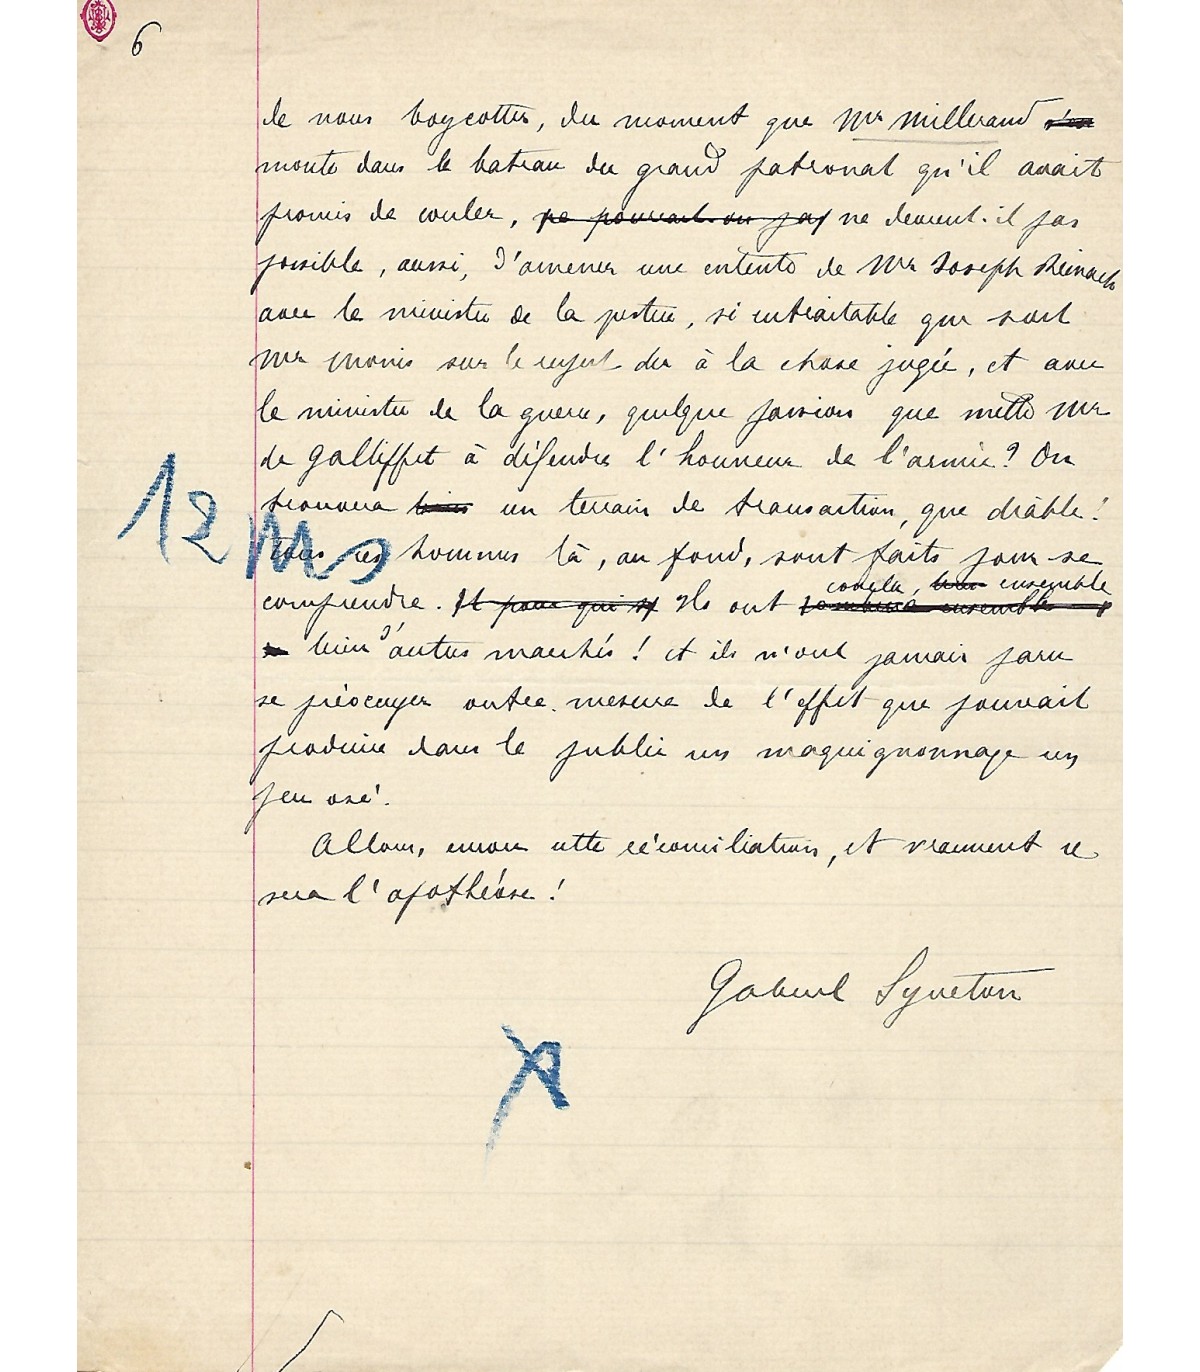 6
de nous boycotter, du moment que Mr Millerand
monte dans le bateau du grand patronat qu'il avait
promis de couler, ne pouvait-on pas ne devient-il pas
possible, aussi, d'amener une entente de Mr Joseph Reinach
avec le ministre de la justice, si intraitable que soit
Mr Monis sur le respect dû à la chose jugée, et avec
le ministre de la guerre, quelque passion que mette Mr
de Galliffet à défendre l'honneur de l'armée? On
trouvera bien un terrain de transaction, que diable!
Tous ces hommes là, au fond, sont faits pour se
conclu, bien ensemble
comprendre. Et pour qui Ils ont ensemble
bien d'autres marchés! et ils n'ont jamais paru
se préoccuper outre mesure de l'effet que pouvait
produire dans le public un maquignonnage un
peu osé.
Allons, encore cette réconciliation, et vraiment ce
sera l'apothéose!
Gabriel Syveton
12